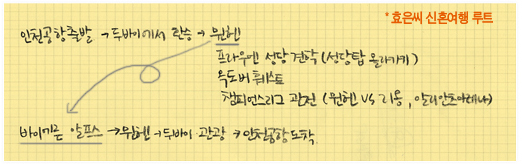 * 효은씨 신혼여행 루트
인천공항출발 → 두바이에서 환승 → 뮌헨
프라우엔 성당 견학 (성당탑 올라가기)
옥토버 페스트
챔피언스리그 관전 (뮌헨 VS 리옹, 알리안츠아레나)
바이에른 알프스 → 뮌헨 → 두바이 관광 → 인천공항 도착